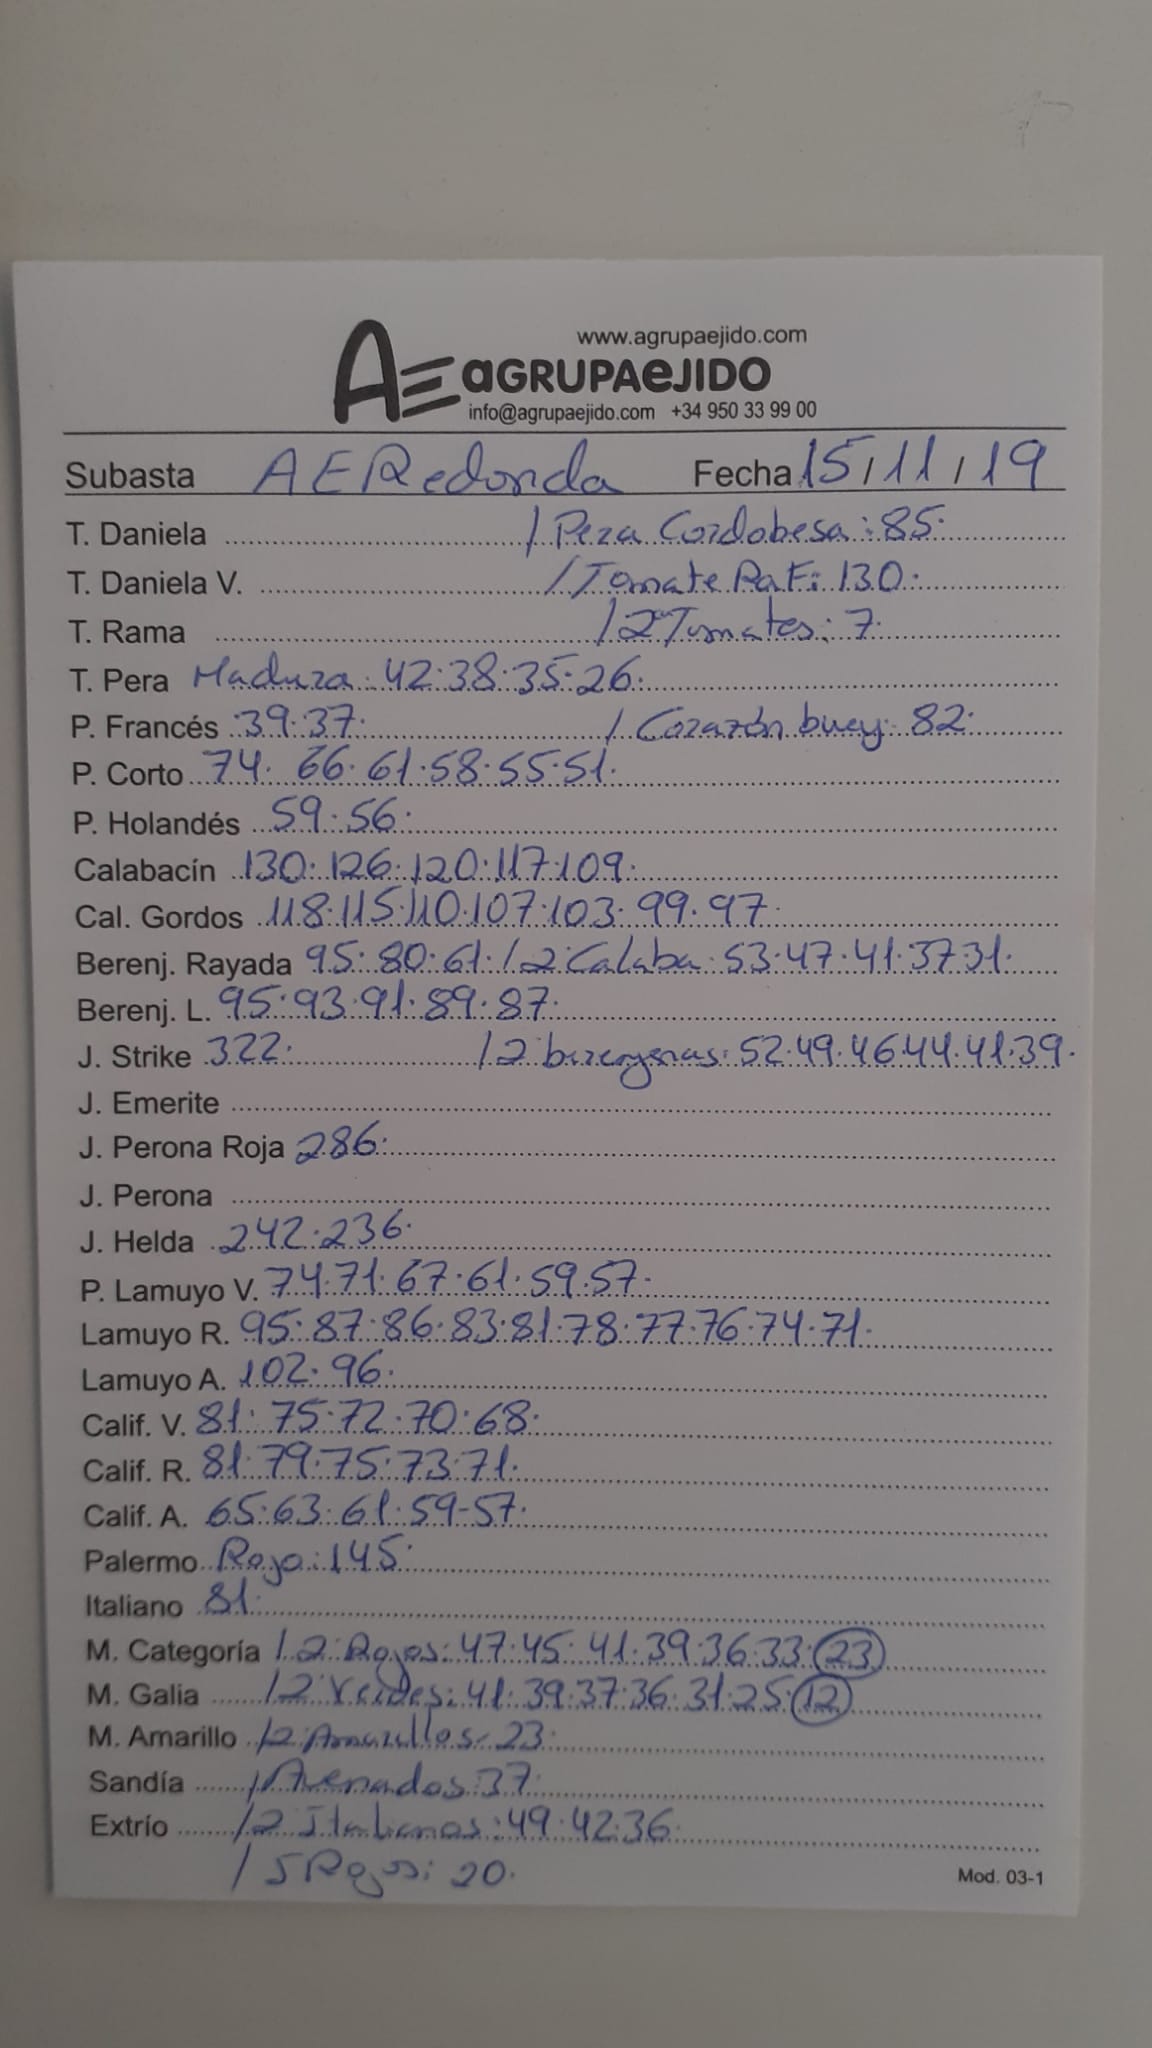 www.agrupaejido.com
AE aGRUPAeJIDO
info@agrupaejido.com +34 950 33 99 00
Subasta AERedonda Fecha 15/11/19
T. Daniela / Pera Cordobesa: 85.
T. Daniela V. /Tomate Raf: 130.
T. Rama /2ª Tomates: 7.
T. Pera Madura: 42.38.35.26.
P. Francés 39.37. / Corazón buey: 82.
P. Corto 74. 66.61.58.55.51.
P. Holandés 59.56.
Calabacín 130.126.120.117.109.
Cal. Gordos 118.115.110.107.103.99.97.
Berenj. Rayada 95.80.61. /2ª Calaba: 53.47.41.37.31.
Berenj. L. 95.93.91.89.87.
J. Strike 322. /2 berengenas: 52.49.46.44.41.39.
J. Emerite
J. Perona Roja 286.
J. Perona
J. Helda 242.236.
P. Lamuyo V. 74.71.67.61.59.57.
Lamuyo R. 95.87.86.83.81.78.77.76.74.71.
Lamuyo A. 102.96.
Calif. V. 81.75.72.70.68.
Calif. R. 81.79.75.73.71.
Calif. A. 65.63.61.59-57.
Palermo Rojo: 145.
Italiano 81.
M. Categoría /2 Rojos: 47.45.41.39.36.33.23
M. Galia /2 Verdes: 41.39.37.36.31.25.12
M. Amarillo /2 Amarillos: 23.
Sandía /Asenados 37.
Extrío /2 Italianos: 49.42.36.
/ 5 Rojos: 20.
Mod. 03-1